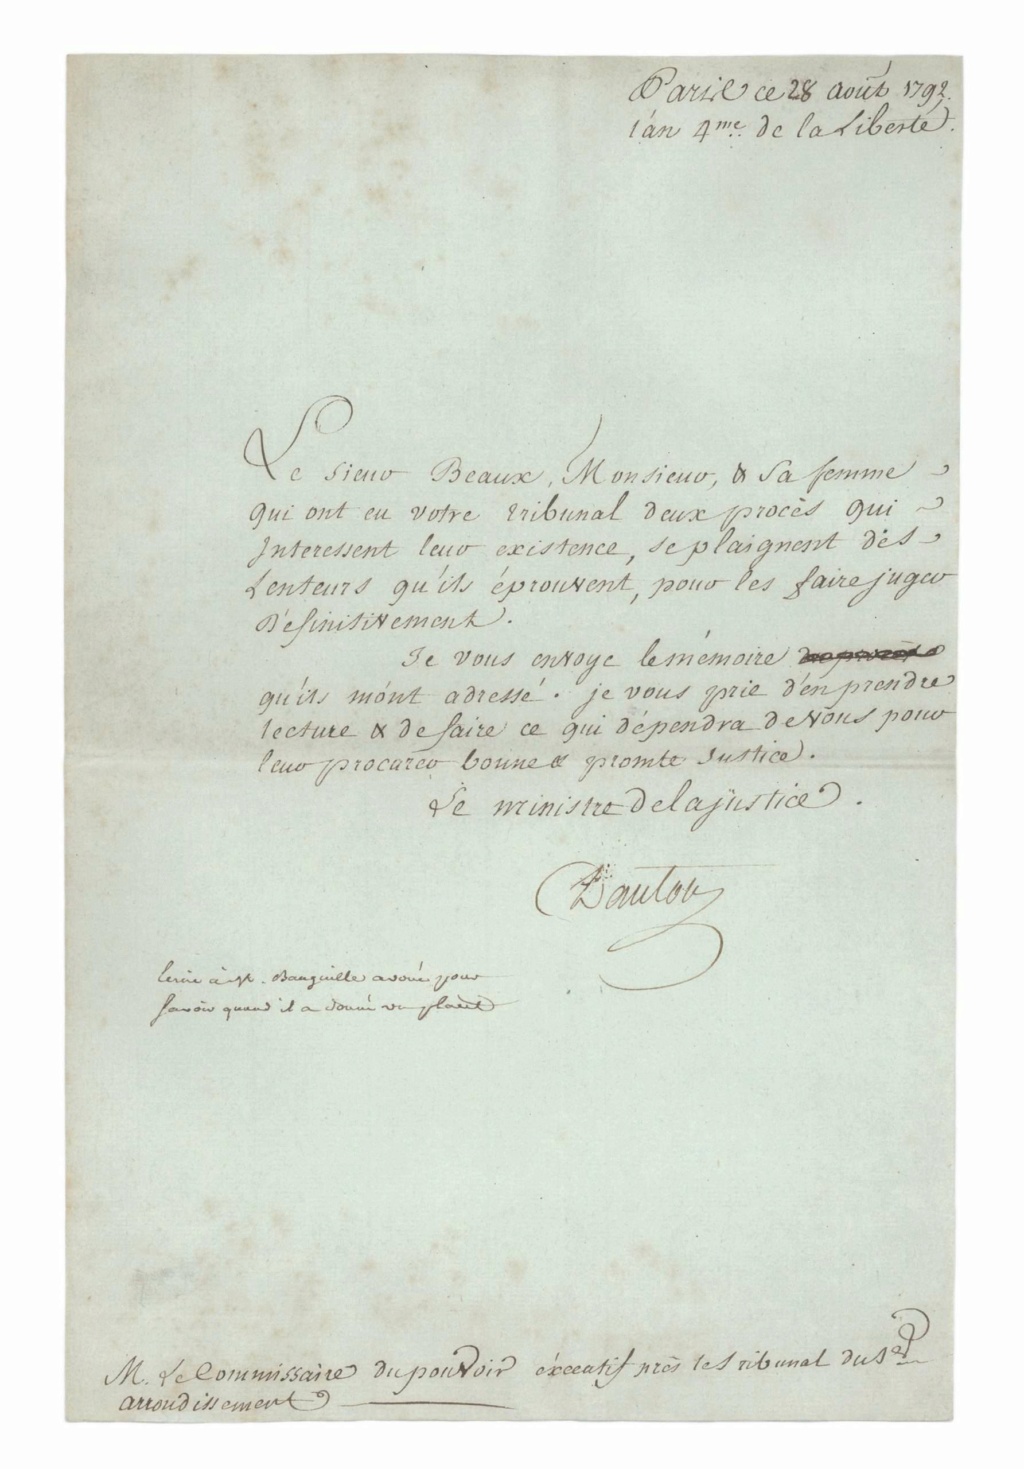 Paris ce 28 août 1792.
l'an 4me. de la Liberté.
Le Sieur Beaux, Monsieur, & Sa femme
qui ont eu votre tribunal deux procès qui
Interessent leur existence, se plaignent des
Lenteurs qu'ils éprouvent, pour les faire juger
Définitivement.
Je vous envoye le mémoire
qu'ils m'ont adressé. je vous prie d'en prendre
lecture & de faire ce qui dépendra de vous pour
leur procurer bonne & promte Justice.
Le ministre de la justice.
Danton
avoué pour
savoir quand il a donné un placet
M. Le Commissaire du pouvoir éxécutif près le tribunal du
arrondissement